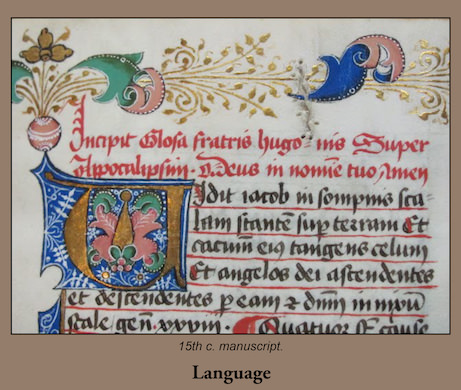 Incipit Glosa fratris hugo nis Super
Appocalipsim. Deus in nomine tuo Amen
Vidit iacob in sompnis sca
lam stantē sup terram Et
cacumē eiꝰ tangens celum
Et angelos dei ascendentes
et descendentes p eam ⁊ dnm in
scale genͥ. xxviij. Quatuor st cause
15th c. manuscript.
Language